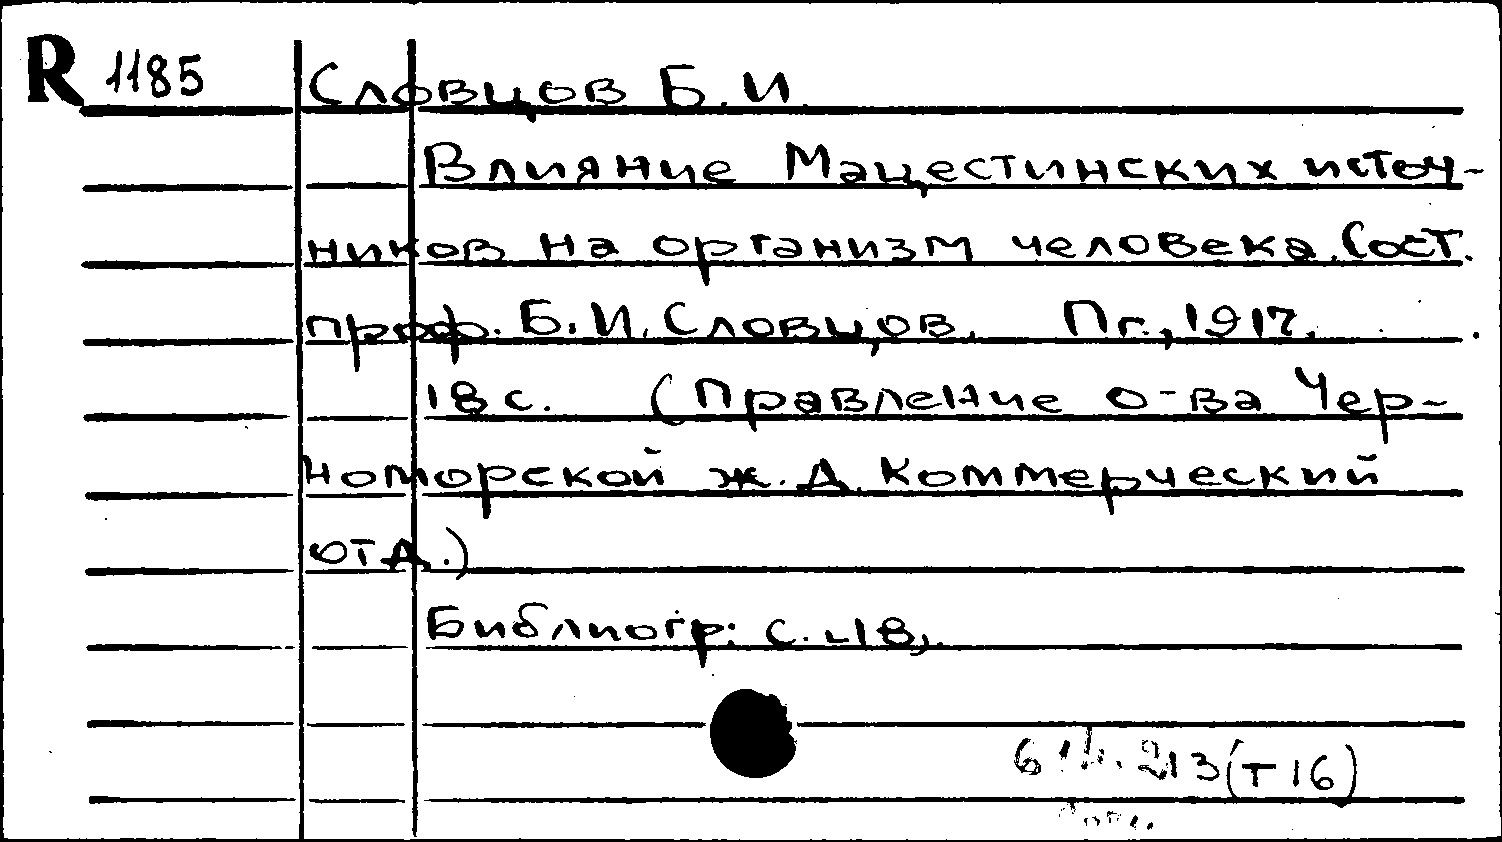 R 1185 Словцов Б.И.
Влияние Мацестинских источ-
ников на организм человека. Сост.
проф. Б.И. Словцов. Пг., 1917.
18 с. (Правление о-ва Чер-
номорской ж.д. Коммерческий
отд.)
Библиогр: с. 18,
213(т 16)